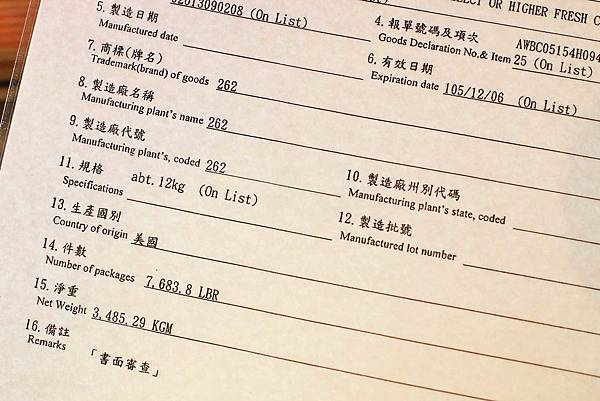 LECT OR HIGHER FRESH C
5.製造日期 02013090208 (On List)
Manufactured date
4.報單號碼及項次 AWBC05154H094
Goods Declaration No.& Item 25 (On List)
7.商標(牌名)
Trademark(brand) of goods 262
6.有效日期
Expiration date 105/12/06 (On List)
8.製造廠名稱
Manufacturing plant's name 262
9.製造廠代號
Manufacturing plant's, coded 262
10.製造廠州別代碼
Manufacturing plant's state, coded
11.規格 abt.12kg (On List)
Specifications
12.製造批號
Manufactured lot number
13.生產國別
Country of origin 美國
14.件數
Number of packages 7,683.8 LBR
15.淨重
Net Weight 3,485.29 KGM
16.備註
Remarks 「書面審查」